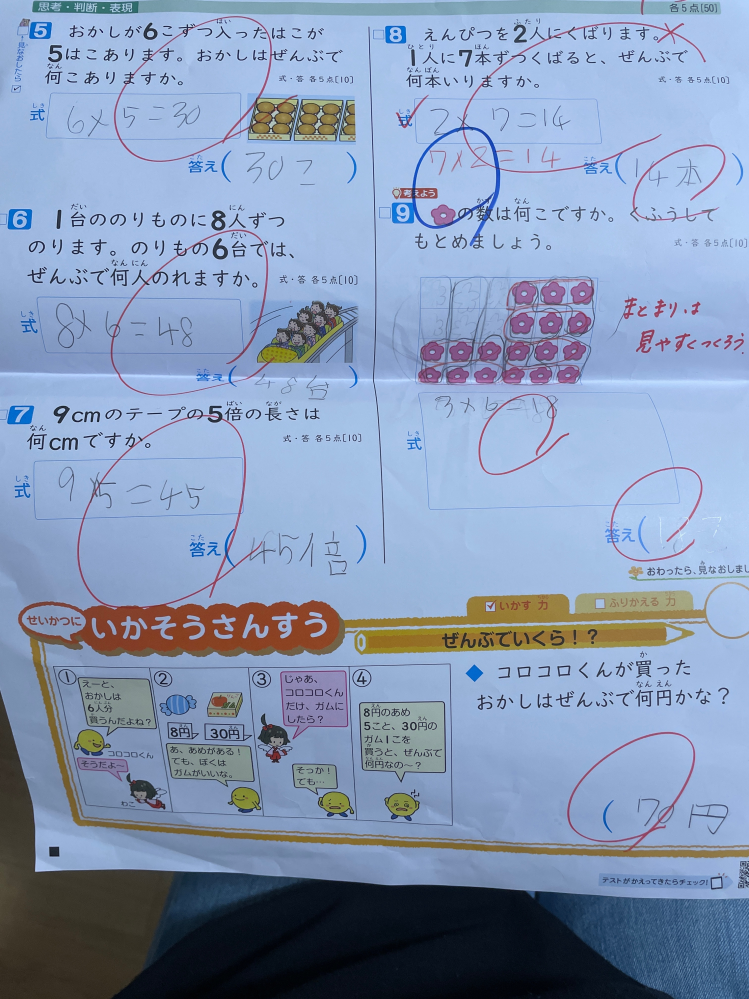 思考・判断・表現
各5点[50]
見なおしたら
5 おかしが6こずつ入ったはこが
5はこあります。おかしはぜんぶで
何こありますか。
式・答 各5点[10]
式 6×5=30
答え(30こ)
6 1台ののりものに8人ずつ
のります。のりもの6台では、
ぜんぶで何人のれますか。
式・答 各5点[10]
式 8×6=48
答え(48台)
7 9cmのテープの5倍の長さは
何cmですか。
式・答 各5点[10]
式 9×5=45
答え(45倍)
8 えんぴつを2人にくばります。
1人に7本ずつくばると、ぜんぶで
何本いりますか。
式・答 各5点[10]
式 2×7=14
7×2=14
答え(14本)
考えよう
9 の数は何こですか。くふうして
もとめましょう。
式・答 各5点[10]
まとまりは
見やすくつくろう
式 3×6=18
答え(
おわったら、見なおしまし
せいかつに
いかそうさんすう
いかす力
ふりかえる力
ぜんぶでいくら!?
①
えーと、
おかしは
6人分
買うんだよね?
コロコロくん
そうだよ~
わこ
②
8円
30円
あ、あめがある!
でも、ぼくは
ガムがいいな。
③
じゃあ、
コロコロくん
だけ、ガムに
したら?
そっか!
でも…
④
8円のあめ
5こと、30円の
ガム1こを
買うと、ぜんぶで
何円なの~?
◆ コロコロくんが買った
おかしはぜんぶで何円かな?
(70円
テストがかえってきたらチェック!